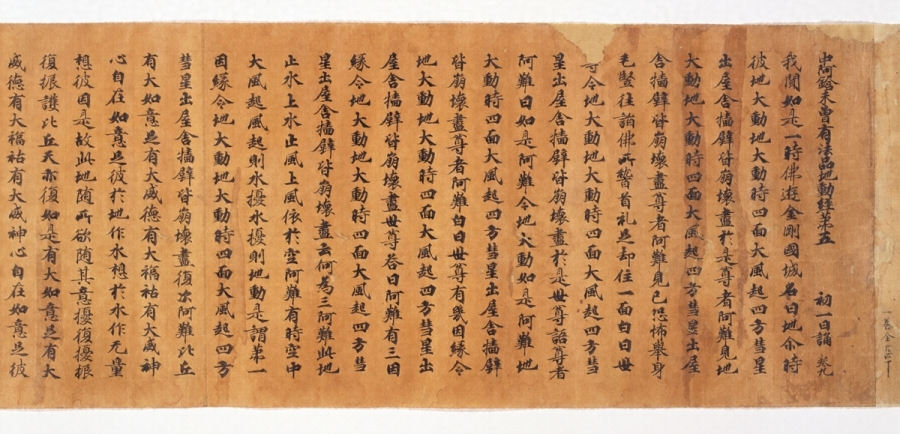 中阿鋡未曾有法品地動經第五 初一日誦
我聞如是一時佛遊金剛國城名曰地尒時
彼地大動地大動時四面大風起四方彗星
出屋舍墻壁皆崩壞盡於是尊者阿難見地
大動地大動時四面大風起四方彗星出屋
舍墻壁皆崩壞盡尊者阿難見已恐怖舉身
毛竪往詣佛所稽首礼足却住一面白曰世
今地大動地大動時四面大風起四方彗
星出屋舍墻壁皆崩壞盡於是世尊語尊者
阿難曰如是阿難今地大動如是阿難地
大動時四面大風起四方彗星出屋舍墻壁
皆崩壞盡尊者阿難白曰世尊有幾因緣令
地大動地大動時四面大風起四方彗星出
屋舍墻壁皆崩壞盡世尊答曰阿難有三因
緣令地大動地大動時四面大風起四方彗
星出屋舍墻壁皆崩壞盡云何為三阿難此地
止水上水止風上風依於空阿難有時空中
大風起風起則水擾水擾則地動是謂第一
因緣令地大動地大動時四面大風起四方
彗星出屋舍墻壁皆崩壞盡復次阿難比丘
有大如意足有大威德有大福祐有大威神
心自在如意足彼於地作水想於水作无量
想彼因是故此地隨所欲隨其意擾復擾振
復振護比丘天亦復如是有大如意足有大
威德有大福祐有大威神心自在如意足彼